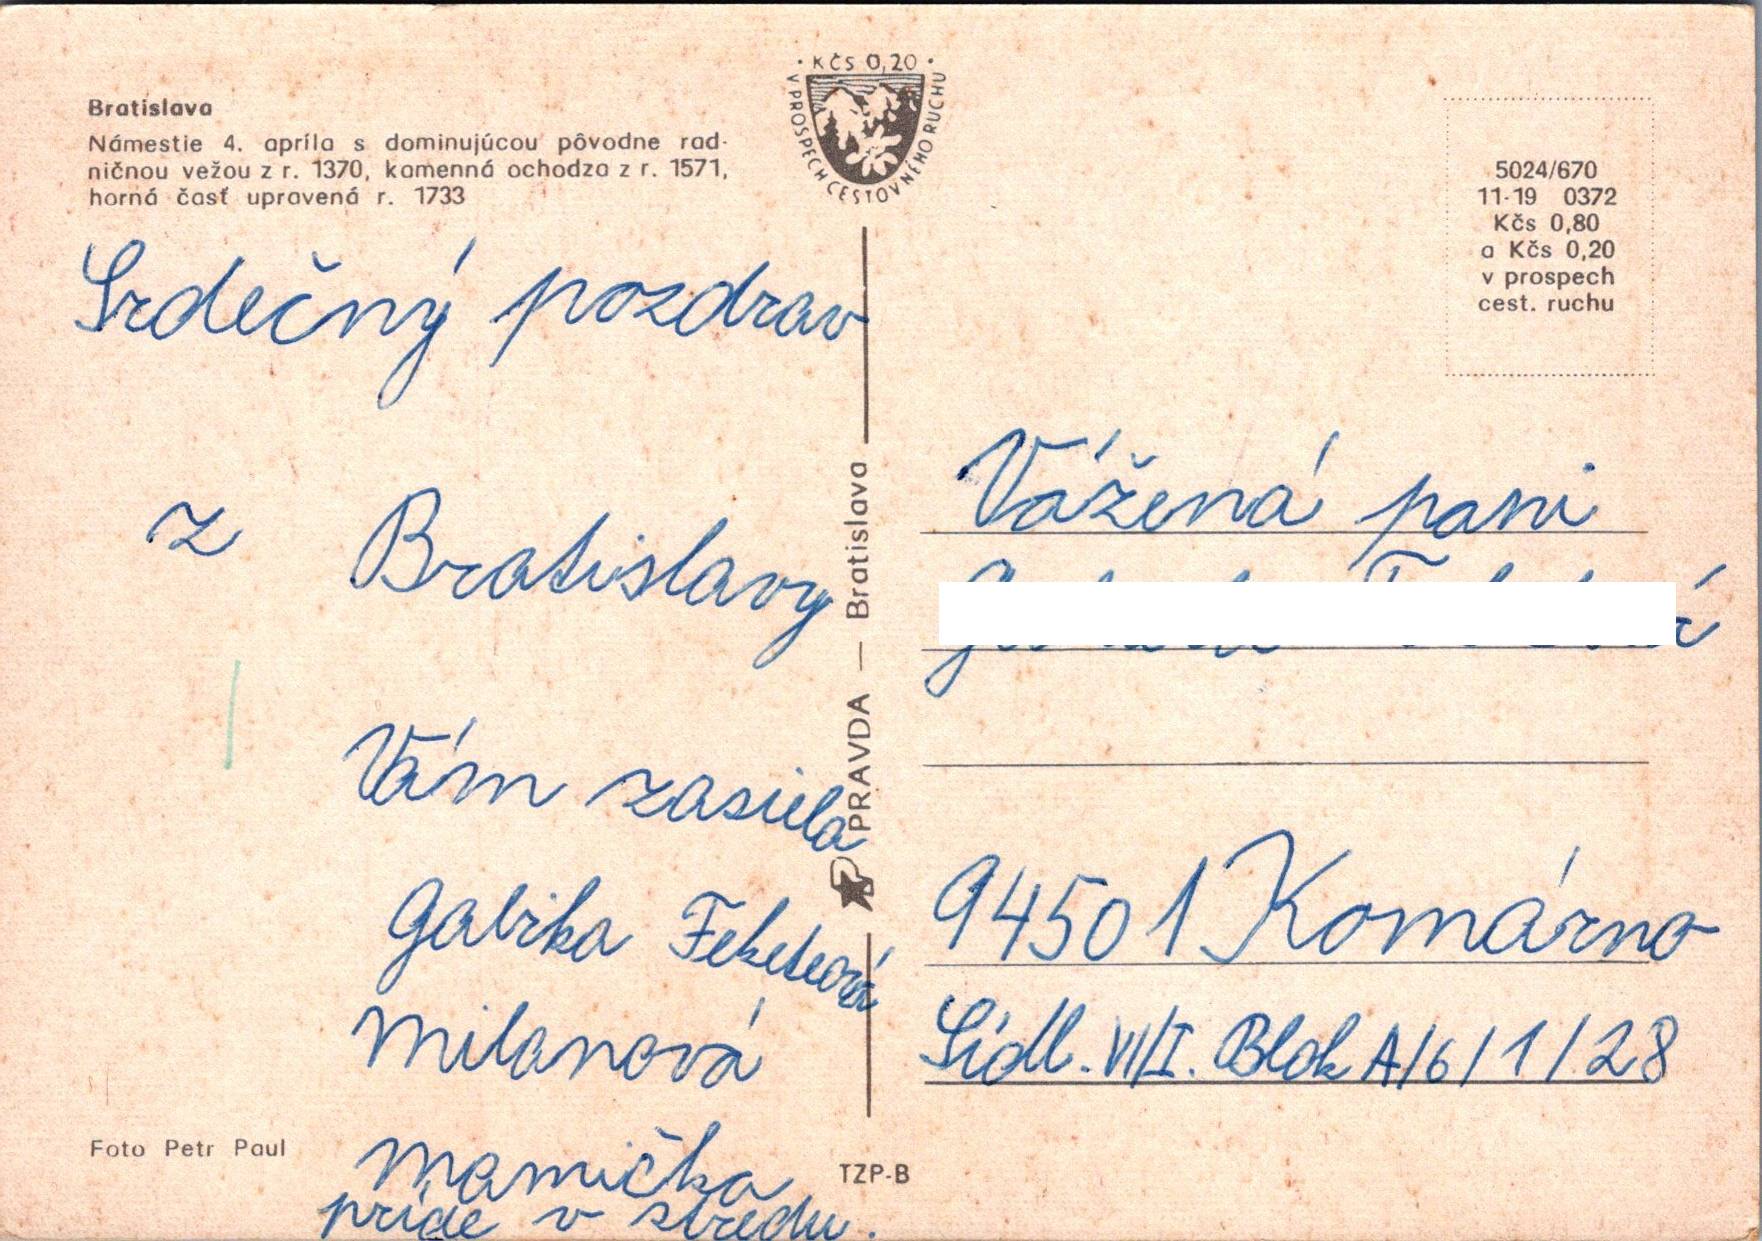 Bratislava
Námestie 4. apríla s dominujúcou pôvodne rad-
ničnou vežou z r. 1370, kamenná ochodza z r. 1571,
horná časť upravená r. 1733
· KČS 0,20 ·
V PROSPECH CESTOVNÉHO RUCHU
5024/670
11-19 0372
Kčs 0,80
a Kčs 0,20
v prospech
cest. ruchu
Srdečný pozdrav
z Bratislavy
Vám zasiela
Gabika Feketeová
Milanová
Mamička
príde v stredu.
Foto Petr Paul
PRAVDA — Bratislava
TZP-B
Vážená pani
94501 Komárno
Sídl. VII/I. Blok A/6/1/28